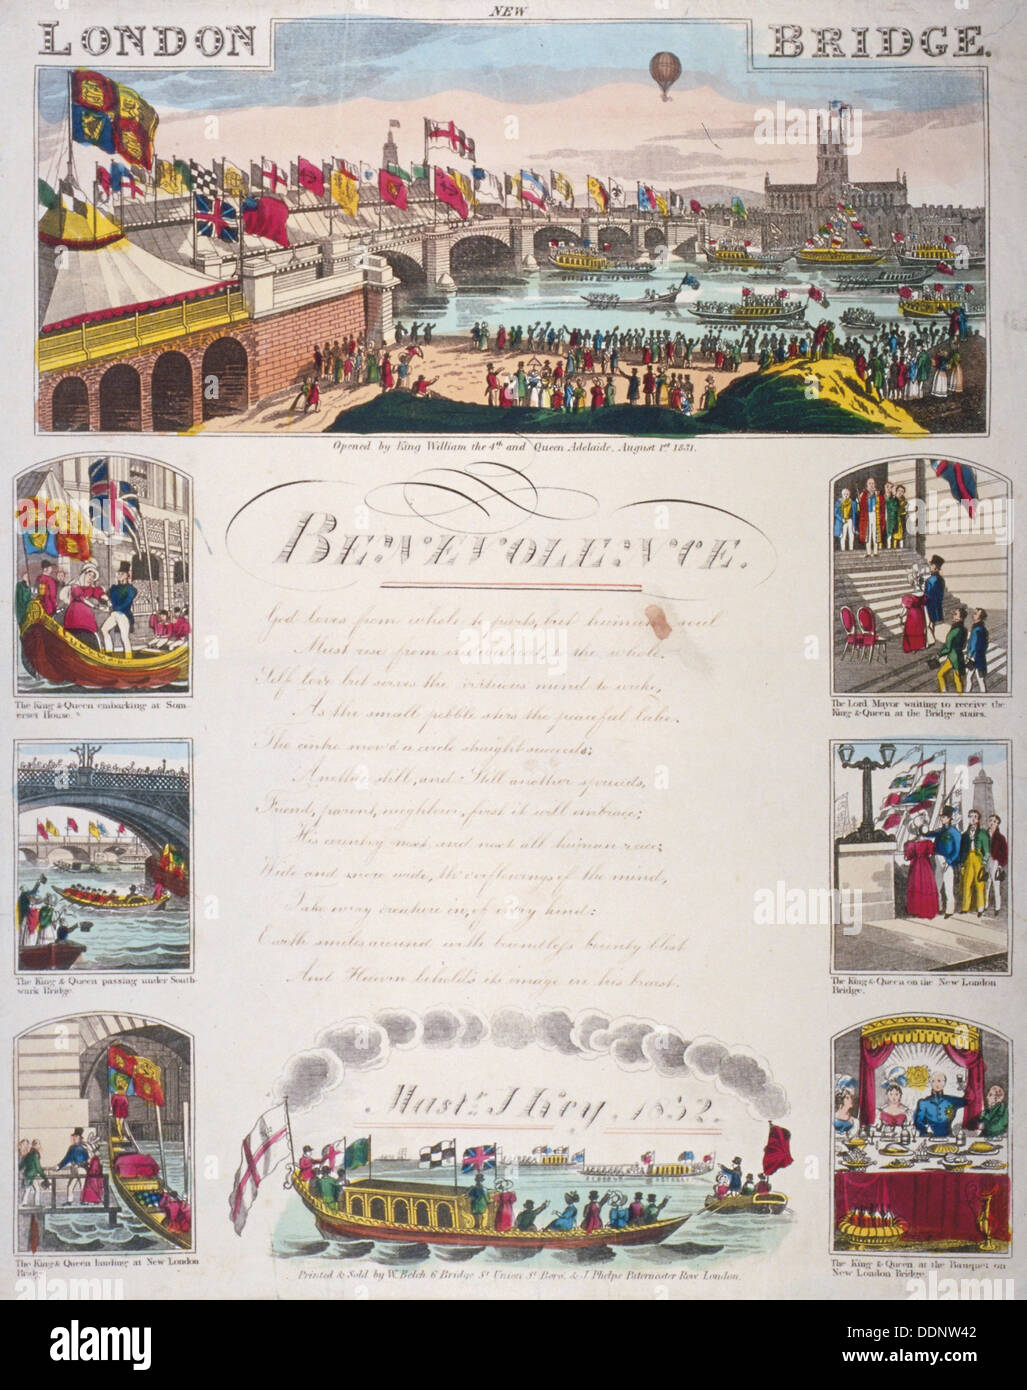 NEW
LONDON BRIDGE.
Opened by King William the 4th and Queen Adelaide, August 1st 1831.
The King & Queen embarking at Som-
erset House.
The Lord Mayor waiting to receive the
King & Queen at the Bridge stairs.
BENEVOLENCE.
God loves from whole to parts, but human soul
Must rise from individual to the whole.
Self love but serves the virtuous mind to wake,
As the small pebble stirs the peaceful lake.
The centre mov'd a circle straight succeeds;
Another still, and still another spreads,
Friend, parent, neighbour, first it will embrace;
His country next and next all human race;
Wide and more wide, th' o'erflowings of the mind,
Take ev'ry creature in, of ev'ry kind:
Earth smiles around with boundless bounty blest
And Heaven beholds its image in his breast.
The King & Queen passing under South-
wark Bridge.
The King & Queen on the New London
Bridge.
The King & Queen landing at New London
Bridge
The King & Queen at the Banquet on
New London Bridge.
1832.
Printed & Sold by Wm. Belch 6 Bridge St Union St Boro', & J. Phelps Paternoster Row London.
a alamy stock photo
alamy
www.alamy.com
Image ID: DDNW42